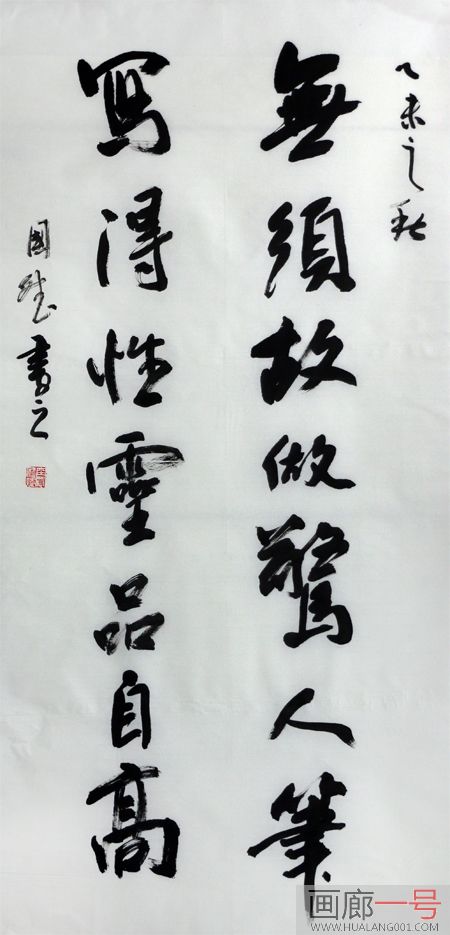 乙未之秋
無須故做驚人筆
寫得性靈品自高
書之
画廊一号
WWW.HUALANG001.COM